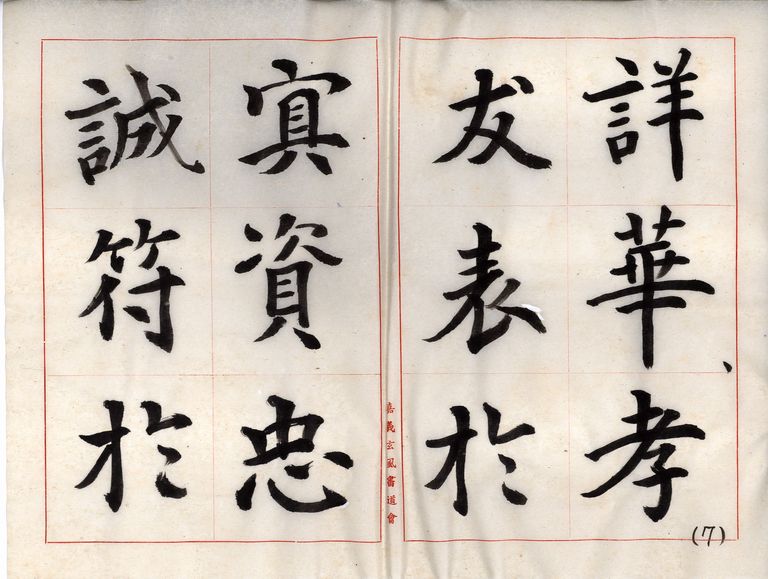 詳華、孝
友表於
冥資忠
誠符於
嘉義玄風書道會
(7)